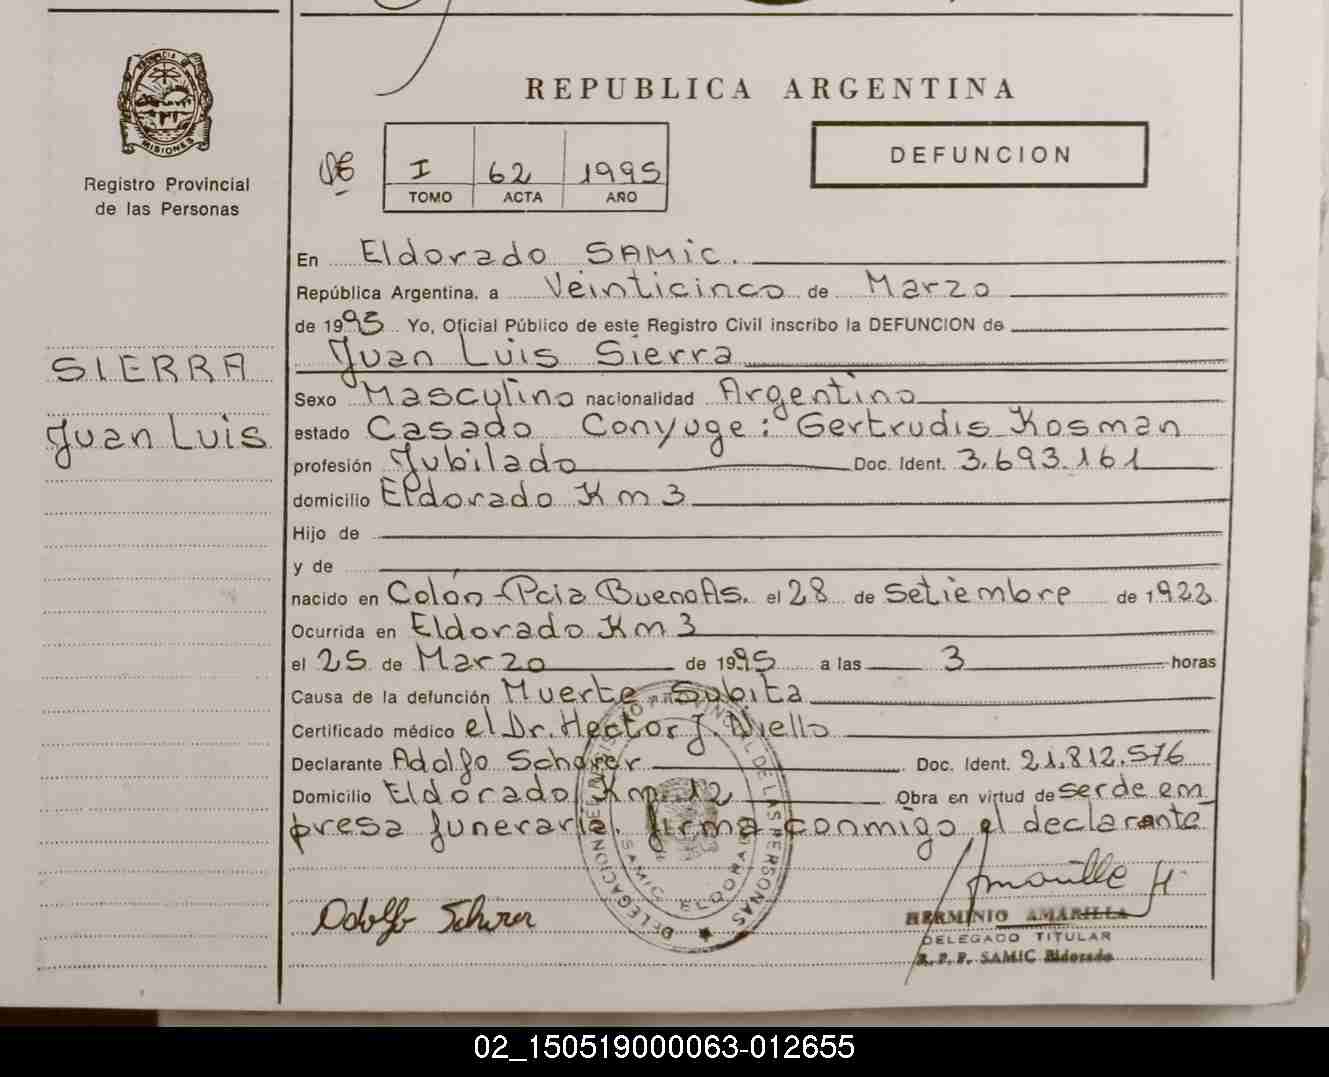 REPUBLICA ARGENTINA
PROVINCIA DE MISIONES
Registro Provincial
de las Personas
I 62 1995
TOMO ACTA AÑO
DEFUNCION
SIERRA
Juan Luis
En Eldorado SAMIC.
República Argentina, a Veinticinco de Marzo
de 1995 Yo, Oficial Público de este Registro Civil inscribo la DEFUNCION de
Juan Luis Sierra
Sexo Masculino nacionalidad Argentino
estado Casado Conyuge: Gertrudis Kosman
profesión Jubilado Doc. Ident. 3.693.161
domicilio Eldorado Km 3
Hijo de
y de
nacido en Colón-Pcia Buenos As. el 28 de Setiembre de 1922
Ocurrida en Eldorado Km 3
el 25 de Marzo de 1995 a las 3 horas
Causa de la defunción Muerte Subita
Certificado médico el Dr. Hector J. Niello
Declarante Adolfo Scherer Doc. Ident. 21.812.576
Domicilio Eldorado Km 12 Obra en virtud de ser de em
presa funeraria. firma conmigo el declarante
DELEGACION DE REGISTRO PROVINCIAL DE LAS PERSONAS
SAMIC ELDORADO
Amarilla H.
Adolfo Scherer
HERMINIO AMARILLA
DELEGADO TITULAR
R. P. P. SAMIC Eldorado
02_150519000063-012655